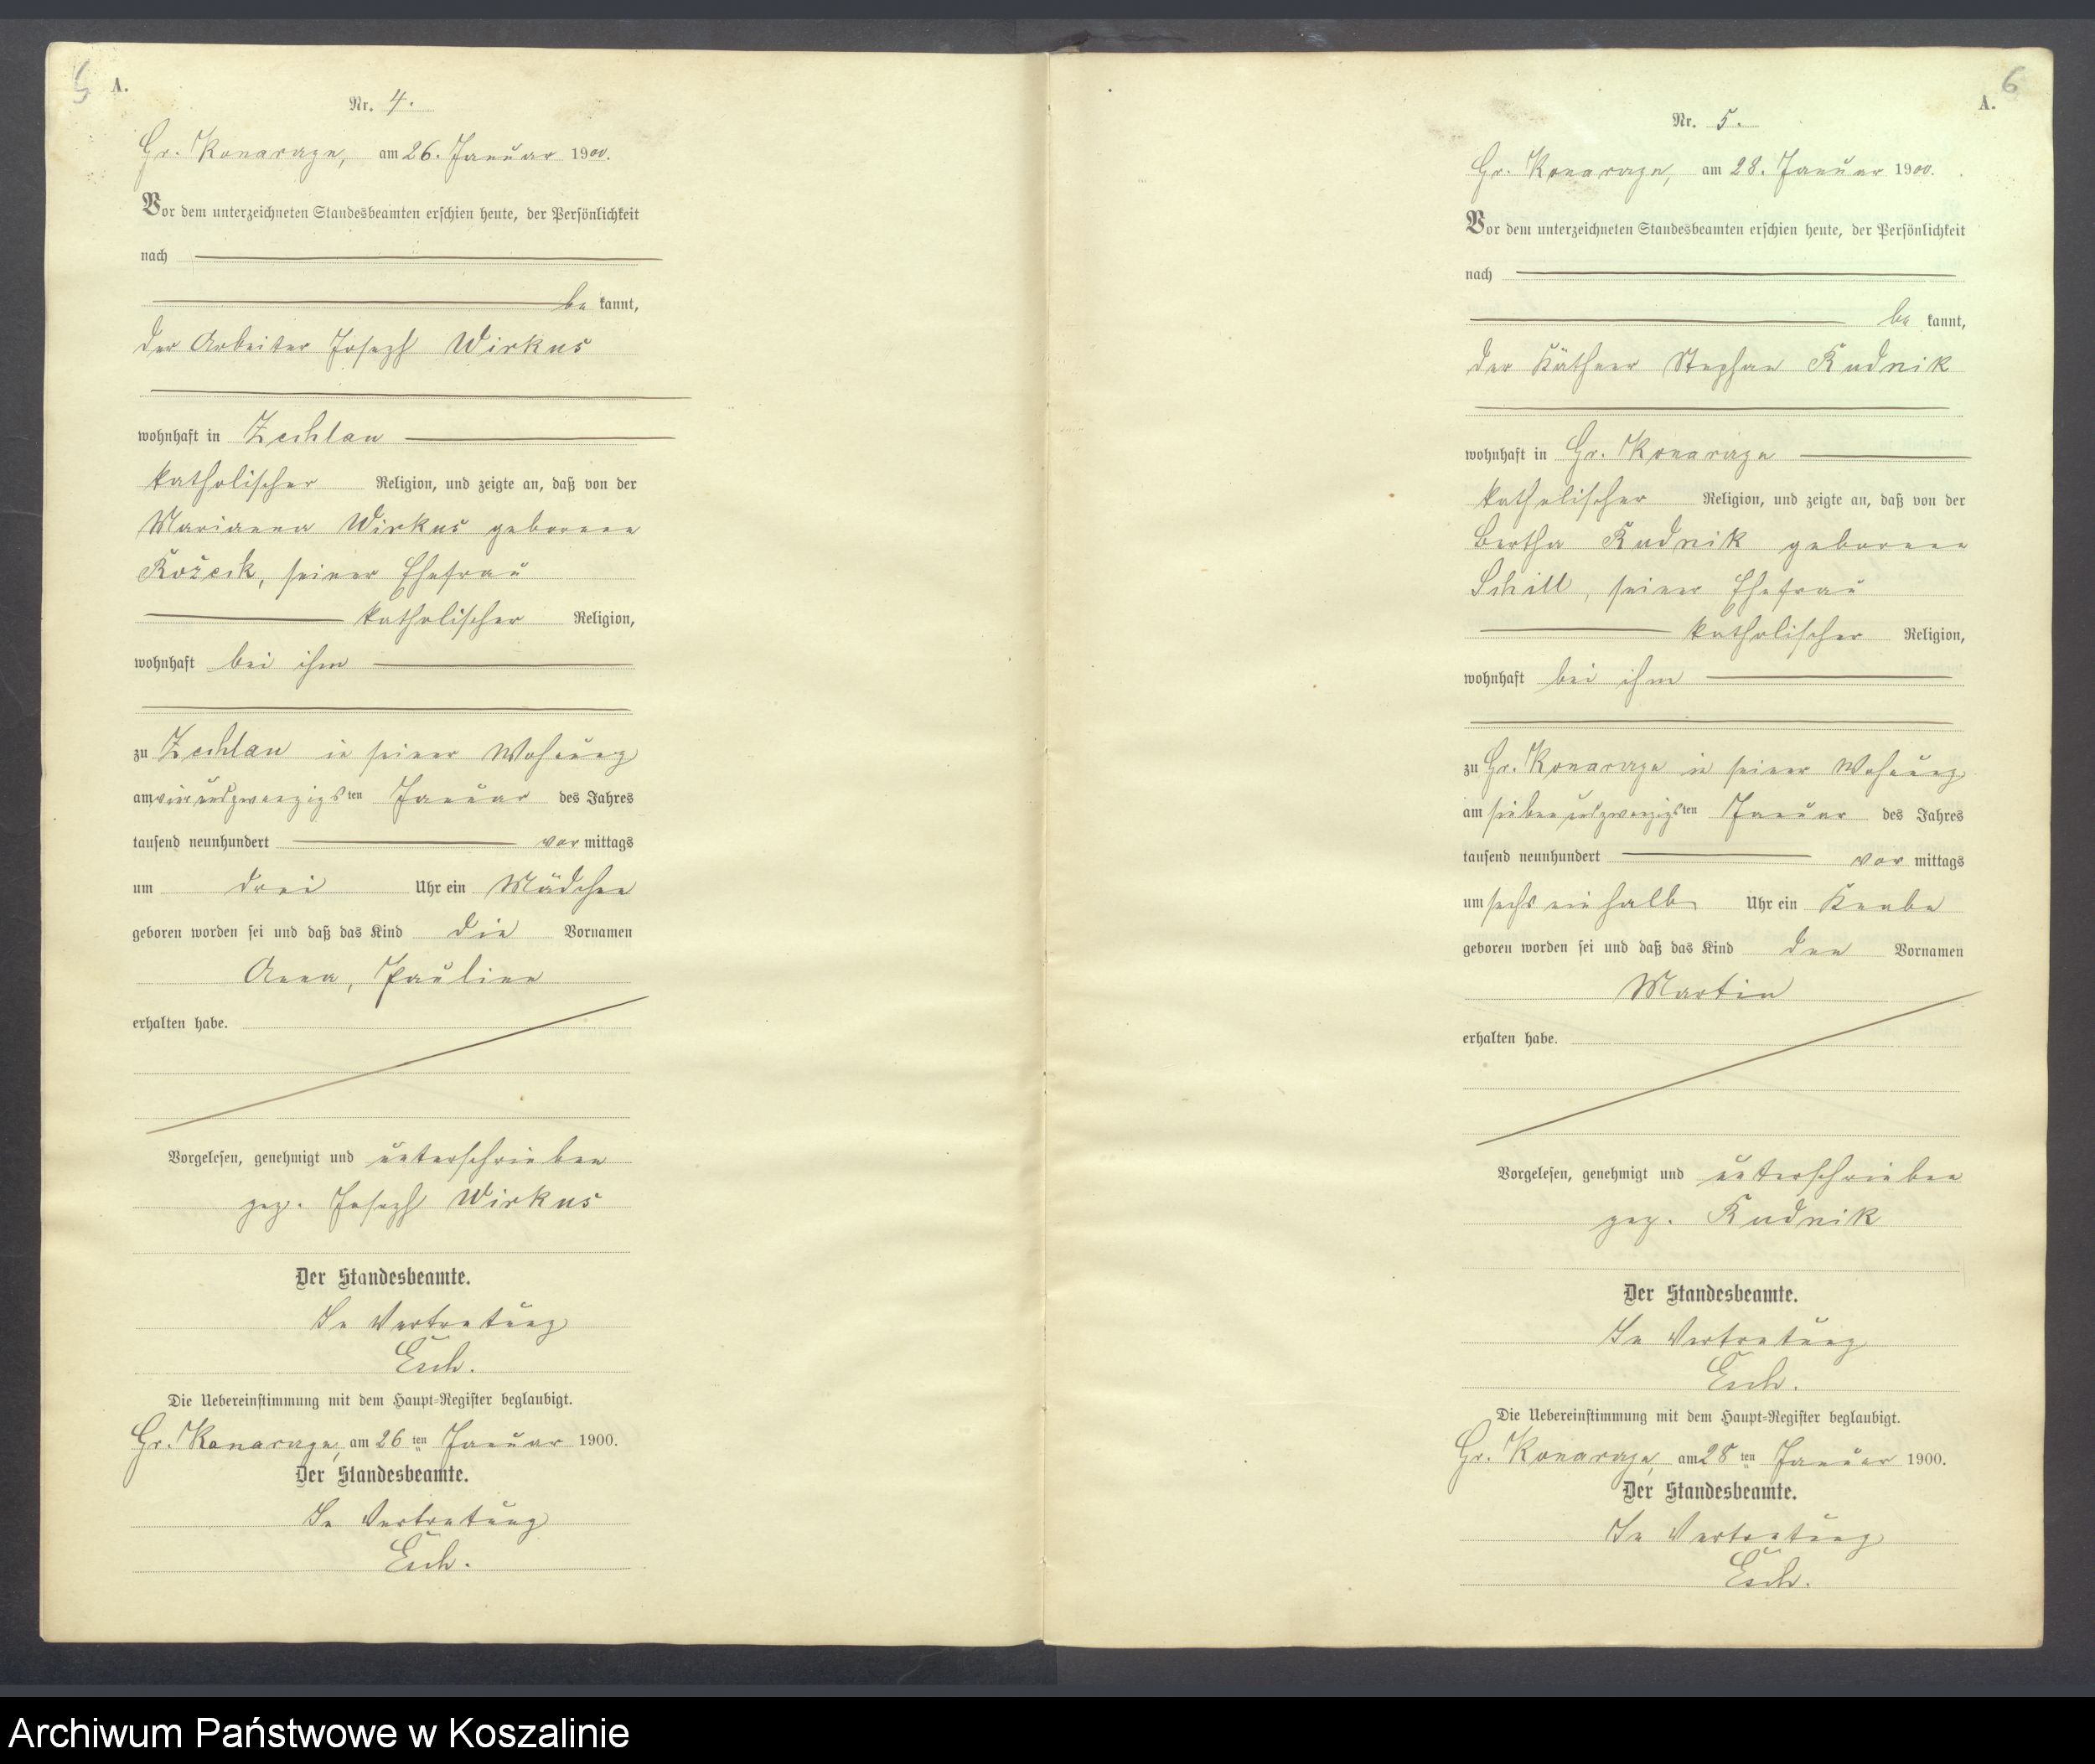 5
A.
Nr. 4.
Gr. Konarczyn, am 26. Januar 1900.
Vor dem unterzeichneten Standesbeamten erschien heute, der Persönlichkeit
nach
be kannt,
der Arbeiter Joseph Wirkus
wohnhaft in Zechlau
katholischer Religion, und zeigte an, daß von der
Marianna Wirkus geborene
seiner Ehefrau
katholischer Religion,
wohnhaft bei ihm
zu Zechlau in seiner Wohnung
am vierundzwanzigsten Januar des Jahres
tausend neunhundert vor mittags
um drei Uhr ein Mädchen
geboren worden sei und daß das Kind die Vornamen
Anna, Pauline
erhalten habe.
Vorgelesen, genehmigt und unterschrieben
gez. Joseph Wirkus
Der Standesbeamte.
In Vertretung
Esch.
Die Uebereinstimmung mit dem Haupt-Register beglaubigt.
Gr. Konarczyn, am 26ten Januar 1900.
Der Standesbeamte.
In Vertretung
Esch.
6
A.
Nr. 5.
Gr. Konarczyn, am 28. Januar 1900.
Vor dem unterzeichneten Standesbeamten erschien heute, der Persönlichkeit
nach
be kannt,
der Käthner Stephan Rudnik
wohnhaft in Gr. Konarczyn
katholischer Religion, und zeigte an, daß von der
Bertha Rudnik geborene
Schill, seiner Ehefrau
katholischer Religion,
wohnhaft bei ihm
zu Gr. Konarczyn in seiner Wohnung
am siebenundzwanzigsten Januar des Jahres
tausend neunhundert vor mittags
um sechs einhalb Uhr ein Knabe
geboren worden sei und daß das Kind den Vornamen
Martin
erhalten habe.
Vorgelesen, genehmigt und unterschrieben
gez. Rudnik
Der Standesbeamte.
In Vertretung
Esch.
Die Uebereinstimmung mit dem Haupt-Register beglaubigt.
Gr. Konarczyn, am 28ten Januar 1900.
Der Standesbeamte.
In Vertretung
Esch.
Archiwum Państwowe w Koszalinie